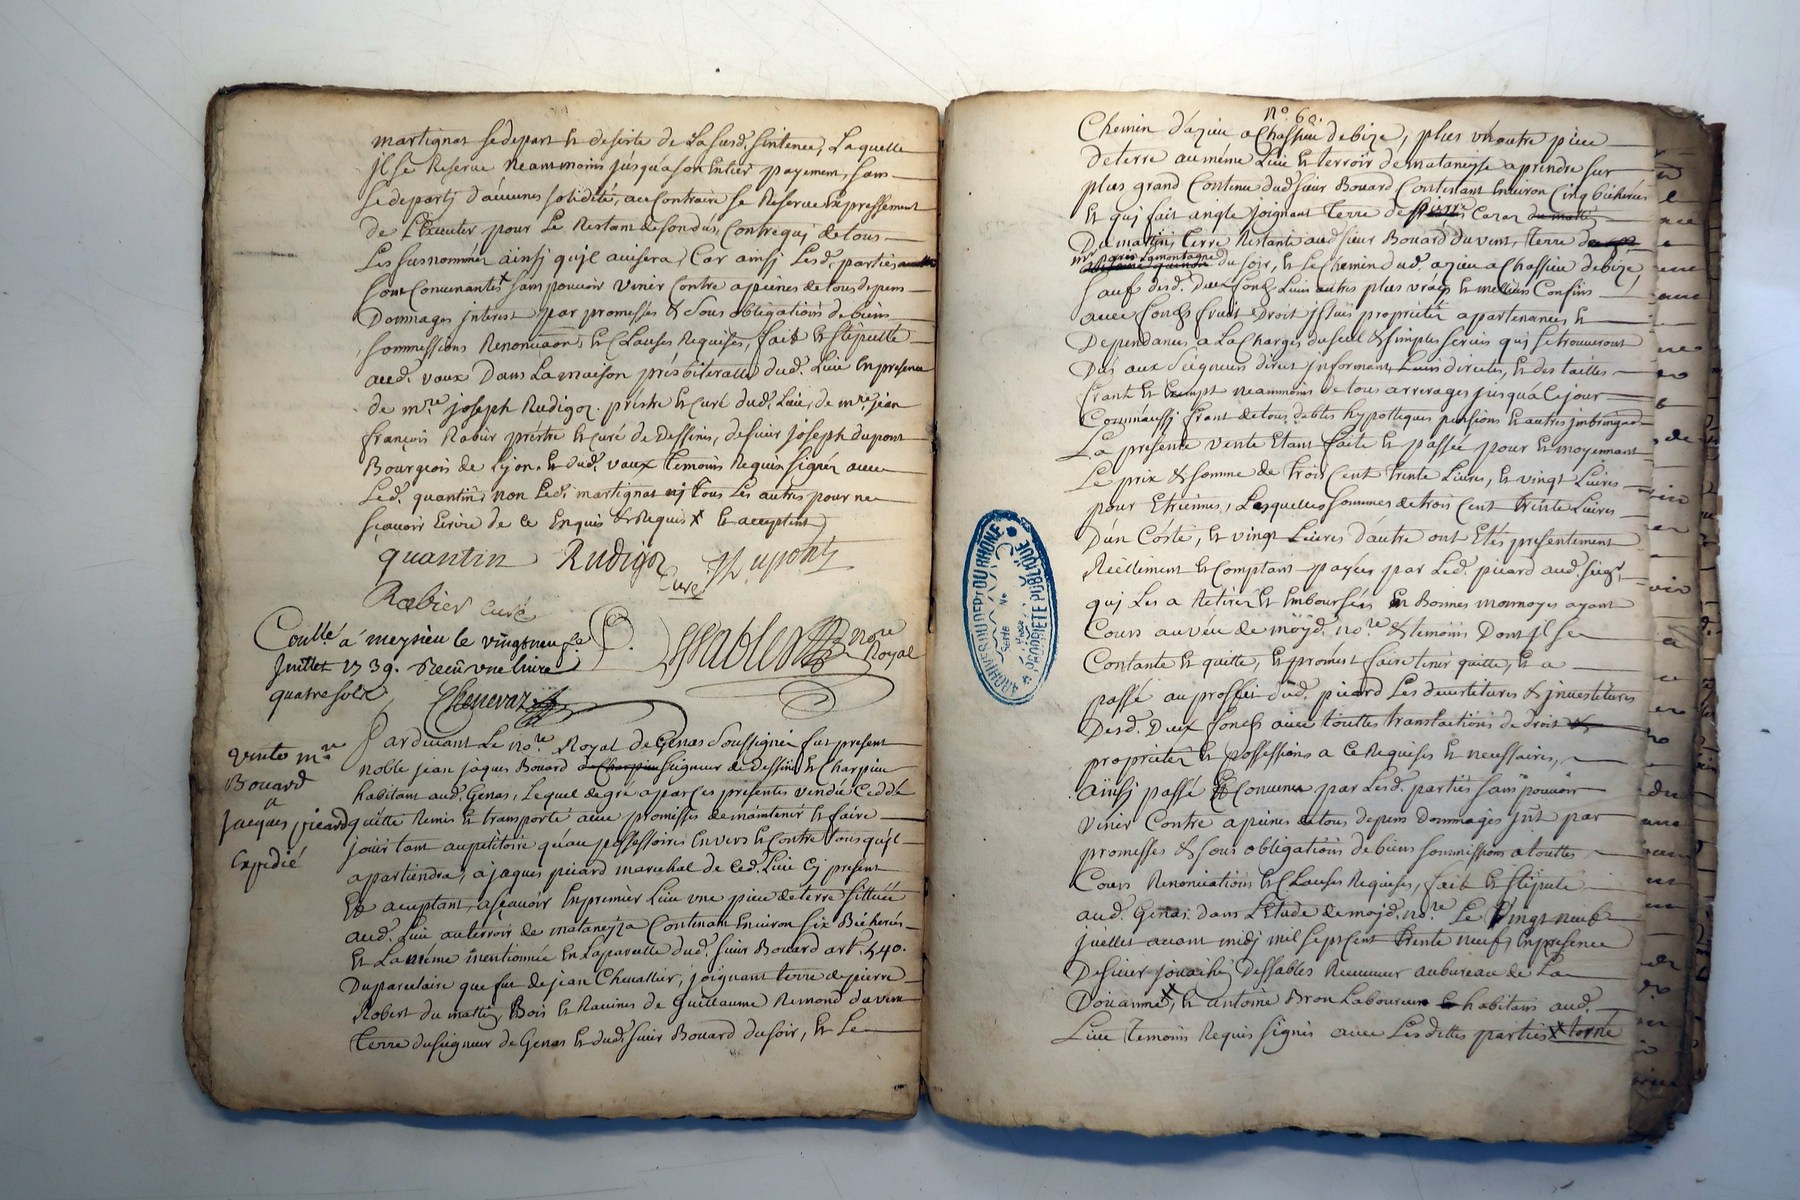 martignat se depart et desiste de la susd. sentence, laquelle
il se Reserve neanmoins jusqu'a son entier payement, sans
se departj d'aucunes solidité, au contraire se Reserve Expressement
de l'Executer pour le Restant de son dû, contre quj de tous
Les susnommés ainsj qu'jl avisera, Car ainsj Lesd. parties
sont Convenantes x sans pouvoir venir Contre a peines de tous depens
Dommages jnterest par promesses & sous obligations de biens
sommissions Renonciaons, et Clauses Requises, fait et stipullé
aud. vaux Dans la maison présbiteralle dud. Lieu En presence
de mre joseph Rudigoz prestre et curé dud. Lieu, de mre jean
françois Rabier préstre et curé de Dessines, de sieur joseph dupont
Bourgeois de lyon et dud. vaux temoins Requis signés avec
Led. quantin, non Led. martignat nj tous Les autres pour ne
sçavoir Ecrire de ce Enquis & Requis x et acceptent
quantin Rudigoz Curé Dupont
Rabier curé
Dessables nore Royal
Conllé a meysieu le vingtneuf
Juillet 1739. Receu une livre
quatre sols
Chenevaz
vente mr
Bouard
a
jacques picard
Expedié
Pardevant Le nore Royal de Genas soussigné fut present
noble jean jaques Bouard a Charpieu seigneur de Dessine et Charpieu
habitant aud. Genas, Lequel de gré a par ces presentes vendu Ceddé
quitté Remis et transporté avec promesses de maintenir et faire
jouir tant au petitoire qu'au possessoires Envers et Contre tous qu'jl
apartiendra, a jaques picard marechal de ced. Lieu cj present
Et aceptant, a sçavoir En premier Lieu une piece de terre sittuée
aud. Lieu au terroir de mataneysa Contenant Environ six Bicherés
Et La même mentionnée En La parcelle dud. sieur Bouard art. 540.
Du parcelaire que fut de jean Chevallier, joignant terre de pierre
Robert du mattin, Bois et Racines de Guillaume Remond du vent
terre du seigneur de Genas et dud. sieur Bouard du soir, et Le
n° 60.
Chemin d'azieu a Chassieu de bize, plus une autre piece
de terre au méme Lieu et terroir de mataneysa a prendre sur
plus grand Contenu dud. sieur Bouard Contenant Environ Cinq bicherées
Et quj fait angle joignant terre de pierre Cazot du matin
Du matin, terre Restante aud. sieur Bouard du vent, terre de
mr paris Lamontagne du soir, et Le Chemin dud. azieu a Chassieu de bize,
sauf desd. Deux fonds Leurs autres plus vrais et meilleurs Confins
avec fonds fruits Droit jssues proprietés apartenances et
Dependances a La Charges du seul & simples servis quj se trouveront
Dus aux seigneurs direct jnformant Leurs directes, et des tailles
franc et Exempt neammoins de tous arrerages jusqu'a ce jour
Comm'aussj franc de tous debtes hypotteques pensions et autres jmbringad.
La presente vente Etant faite et passée pour et moyennant
Le prix & somme de trois Cent trente Livres, et vingt Livres
pour Etreines, Lesquelles sommes de trois Cent trente Livres
D'un Cóste, et vingt Livres d'autre ont Etés presentement
Reellement et Comptant payées par Led. picard aud. sieur
quj Les a Retirés et Emboursées En Bonnes monnoyes ayant
Cours au veu de mojd. nore & temoins Dont jl se
Contante et quitte, et promet faire tenir quitte, et a
passé au proffit dud. picard Les devestitures & jnvestitures
Desd. Deux fonds avec touttes translactions de droit
proprietés et possessions a ce Requises et necessaires,
Ainsj passé Et Convenu par Lesd. parties sans pouvoir
venir Contre a peines de tous depens dommages jnt. par
promesses & sous obligations de biens sommissions a touttes
Cours Renonciations et Clauses Requises, fait et stipulé
aud. Genas dans L'Etude de mojd. nore Le vingt neuf
juillet avant midj mil septcent trente neuf, En presence
De sieur Dessables Receveur au bureau de La
Douanne, et antoine Bron Laboureur habitans aud.
Lieu temoins Requis signés avec Lesdittes parties x torné
ARCHIVES DU DEPT DU RHÔNE
PROPRIÉTÉ PUBLIQUE